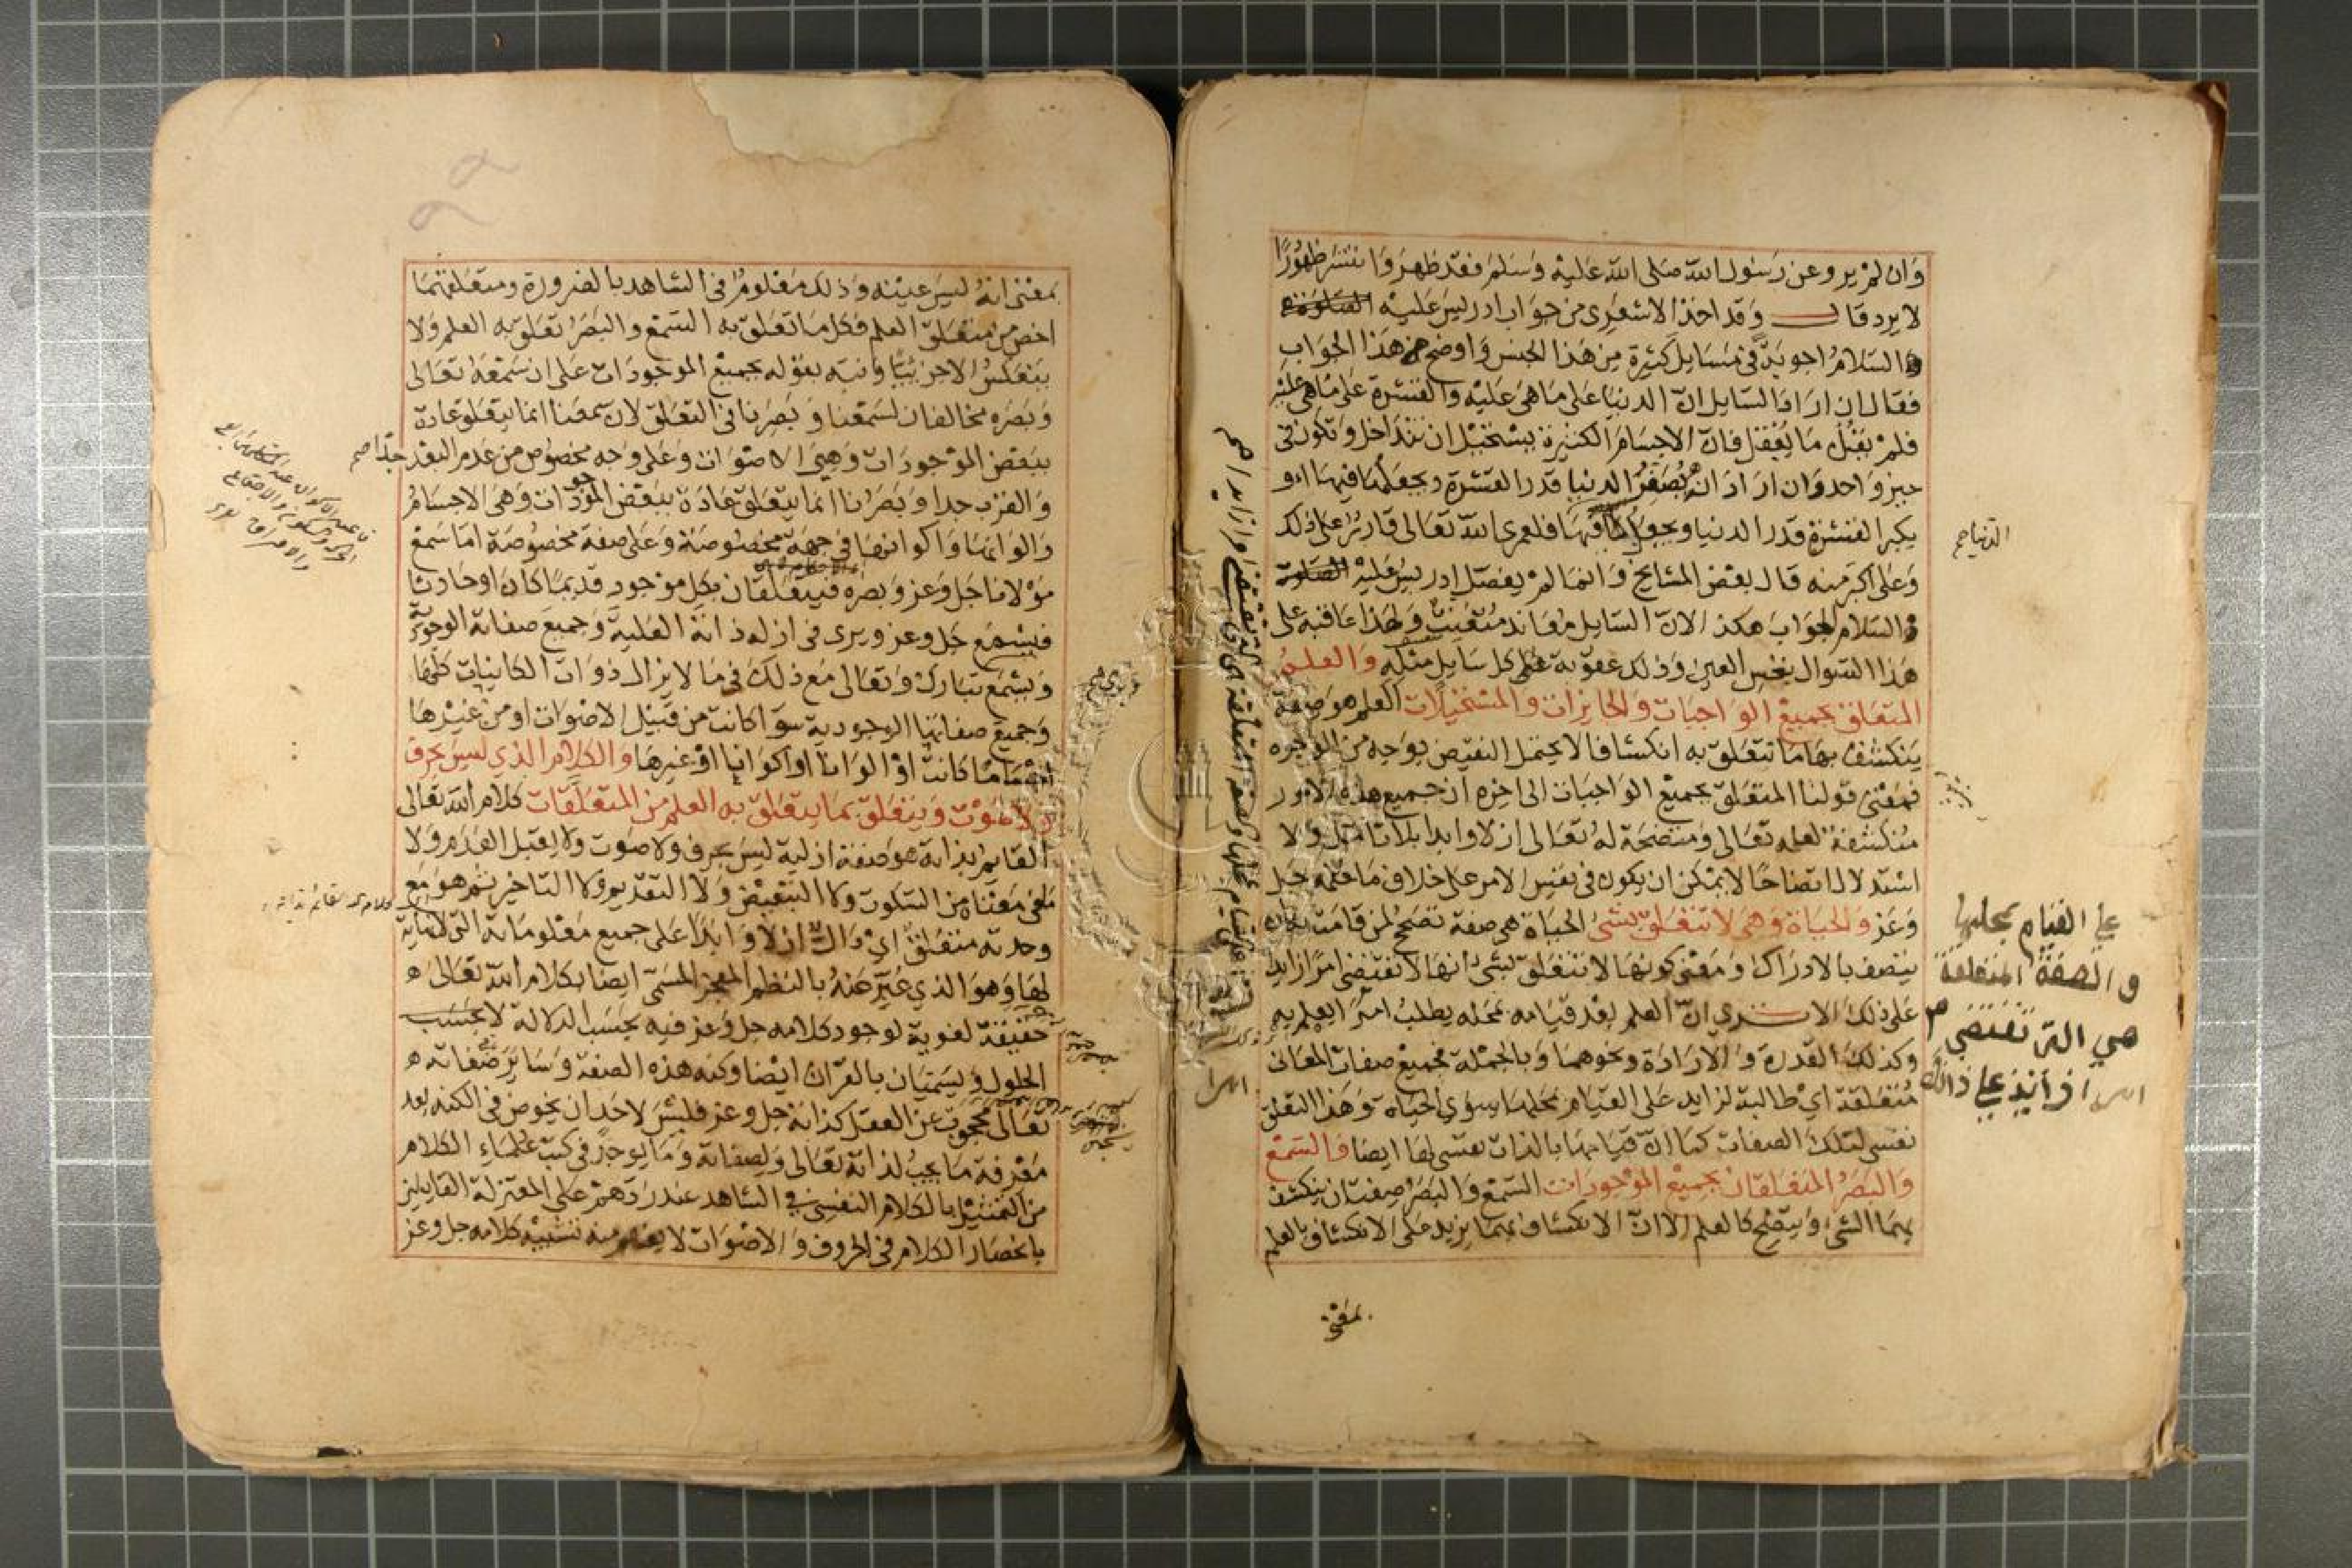 وان لم يرو عن رسول الله صلى الله عليه وسلم فقد ظهر وانتشر ظهورا
لا يرد قال وقد اخذ الاشعري من جواب ادريس عليه الصلوة
والسلام اجوبة في مسايل كثيرة من هذا الجنس واوضح هذا الجواب
فقال ان اراد السايل ان الدنيا على ما هي عليه والقشرة على ما هي عليه
فلم يقل ما يعقل فان الاجسام الكثيرة يستحيل ان تتداخل وتكون في
حيز واحد وان اراد ان يصغر الدنيا قدر القشرة ويجعلها فيها او
يكبر القشرة قدر الدنيا ويجعل فيها فلعمري الله تعالى قادر على ذلك
وعلى اكبر منه قال بعض المشايخ وانما لم يفصل ادريس عليه الصلوة
والسلام الجواب هكذا لان السايل معاند متعنت ولهذا عاقبه على
هذا السوال بنخس العين وذلك عقوبة على كل سايل مثله والعلم
المتعلق بجميع الواجبات والجايزات والمستحيلات العلم هو صفة
ينكشف بها ما تتعلق به انكشافا لا يحتمل النقيض بوجه من الوجوه
فمعنى قولنا المتعلق بجميع الواجبات الى اخره ان جميع هذه الامور
منكشفة لعلمه تعالى ومتضحة له تعالى ازلا وابدا بلا تامل ولا
استدلال اتضاحا لا يمكن ان يكون في نفس الامر على خلاف ما علمه جل
وعز والحياة وهي لا تتعلق بشئ الحياة هي صفة تصحح لمن قامت به ان
يتصف بالادراك ومعنى كونها لا تتعلق بشئ انها لا تقتضي امرا زايدا
على ذلك الا ترى ان العلم بعد قيامه بمحله يطلب امرا يعلم به
وكذلك القدرة والارادة ونحوهما وبالجملة فجميع صفات المعاني
متعلقة اي طالبة لزايد على القيام بمحلها سوى الحياة وهذا التعلق
نفسي لتلك الصفات كما ان قيامها بالذات نفسي لها ايضا والسمع
والبصر المتعلقان بجميع الموجودات السمع والبصر صفتان ينكشف
بهما الشئ ويتضح كالعلم الا ان الانكشاف بهما يزيد على الانكشاف بالعلم
بمعنى
الدنيا صح
على القيام بمحلها
والصفة المتعلقة
هي التي تقتضي
امرا زايد على ذلك
بمعنى انه ليس عينه وذلك معلوم في الشاهد بالضرورة ومتعلقهما
اخص من متعلق العلم فكل ما تعلق به السمع والبصر تعلق به العلم ولا
ينعكس الا جزئيا ونبه بقوله بجميع الموجودات على ان سمعه تعالى
وبصره مخالفان لسمعنا وبصرنا في التعلق لان سمعنا انما يتعلق عادة
ببعض الموجودات وهي الاصوات وعلى وجه مخصوص من عدم البعد جدا صح
والقرب جدا وبصرنا انما يتعلق عادة ببعض الموجودات وهي الاجسام
والوانها واكوانها في جهة مخصوصة وعلى صفة مخصوصة اما سمع
مولانا جل وعز وبصره فيتعلقان بكل موجود قديما كان او حادثا
فيسمع جل وعز ويرى في ازله ذاته العلية وجميع صفاته الوجودية
ويسمع تبارك وتعالى مع ذلك في ما لا يزال ذوات الكاينات كلها
وجميع صفاتها الوجودية سوا كانت من قبيل الاصوات او من غيرها
اجساما كانت او الوانا او اكوانا او غيرها والكلام الذي ليس بحرف
ولا صوت ويتعلق بما يتعلق به العلم من المتعلقات كلام الله تعالى
القايم بذاته هو صفة ازلية ليس بحرف ولا صوت ولا يقبل العدم ولا
ما في معناه من السكوت ولا التبعيض ولا التقديم ولا التاخير ثم هو مع
وحدته متعلق اي دال ازلا وابدا على جميع معلوماته التي لا نهاية
لها وهو الذي عبر عنه بالنظم المعجز المسمى ايضا بكلام الله تعالى
حقيقة لغوية لوجود كلامه جل وعز فيه بحسب الدلالة لا بحسب
الحلول ويسميان بالقران ايضا وكنه هذه الصفة وساير صفاته
تعالى محجوب عن العقل كذاته جل وعز فليس لاحد ان يخوض في الكنه بعد
معرفة ما يجب لذاته تعالى ولصفاته وما يوجد في كتب علماء الكلام
من التمثيل بالكلام النفسي في الشاهد عند ردهم على المعتزلة القايلين
بانحصار الكلام في الحروف والاصوات لا يفهم منه تشبيه كلامه جل وعز